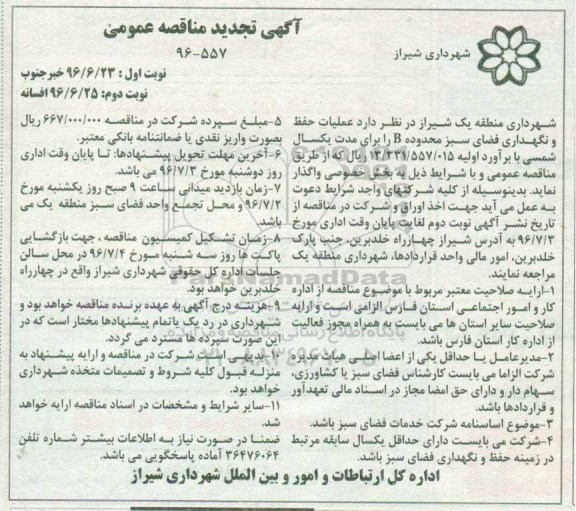 آگهی تجدید مناقصه عمومی
۹۶-۵۵۷
شهرداری شیراز
نوبت اول : ۹۶/۶/۲۳ خبرجنوب
نوبت دوم: ۹۶/۶/۲۵ افسانه
شهرداری منطقه یک شیراز در نظر دارد عملیات حفظ
و نگهداری فضای سبز محدوده B را برای مدت یکسال
شمسی با برآورد اولیه ۱۳/۳۳۱/۵۵۷/۰۱۵ ریال که از طریق
مناقصه عمومی و با شرایط ذیل به بخش خصوصی واگذار
نماید. بدینوسیله از کلیه شرکتهای واجد شرایط دعوت
به عمل می آید جهت اخذ اوراق و شرکت در مناقصه از
تاریخ نشر آگهی نوبت دوم لغایت پایان وقت اداری مورخ
۹۶/۷/۳ به آدرس شیراز چهارراه خلدبرین، جنب پارک
خلدبرین، امور مالی واحد قراردادها، شهرداری منطقه یک
مراجعه نمایند.
۱-ارایه صلاحیت معتبر مربوط با موضوع مناقصه از اداره
کار و امور اجتماعی استان فارس الزامی است و ارایه
صلاحیت سایر استان ها می بایست به همراه مجوز فعالیت
از اداره کار استان فارس باشد.
۲-مدیرعامل یا حداقل یکی از اعضا اصلی هیات مدیره
شرکت الزاما می بایست کارشناس فضای سبز یا کشاورزی،
سهام دار و دارای حق امضا مجاز در اسناد مالی تعهدآور
و قراردادها باشد.
۳-موضوع اساسنامه شرکت خدمات فضای سبز باشد.
۴-شرکت می بایست دارای حداقل یکسال سابقه مرتبط
در زمینه حفظ و نگهداری فضای سبز باشد.
۵-مبلغ سپرده شرکت در مناقصه ۶۶۷/۰۰۰/۰۰۰ ریال
بصورت واریز نقدی یا ضمانتنامه بانکی معتبر.
۶-آخرین مهلت تحویل پیشنهادها: تا پایان وقت اداری
روز دوشنبه مورخ ۹۶/۷/۳ می باشد.
۷-زمان بازدید میدانی ساعت ۹ صبح روز یکشنبه مورخ
۹۶/۷/۲ و محل تجمع واحد فضای سبز منطقه یک می
باشد.
۸-زمان تشکیل کمیسیون مناقصه ، جهت بازگشایی
پاکت ها روز سه شنبه مورخ ۹۶/۷/۴ در محل سالن
جلسات اداره کل حقوقی شهرداری شیراز واقع در چهارراه
خلدبرین خواهد بود.
۹-هزینه درج آگهی به عهده برنده مناقصه خواهد بود و
شهرداری در رد یک یاتمام پیشنهادها مختار است که در
این صورت سپرده ها مسترد می گردد.
۱۰-بدیهی است شرکت در مناقصه و ارایه پیشنهاد به
منزله قبول کلیه شروط و تصمیمات متخذه شهرداری
خواهد بود.
۱۱-سایر شرایط و مشخصات در اسناد مناقصه ارایه خواهد
شد.
ضمنا در صورت نیاز به اطلاعات بیشتر شماره تلفن
۳۶۴۷۶۰۶۴ آماده پاسخگویی می باشد.
اداره کل ارتباطات و امور و بین الملل شهرداری شیراز